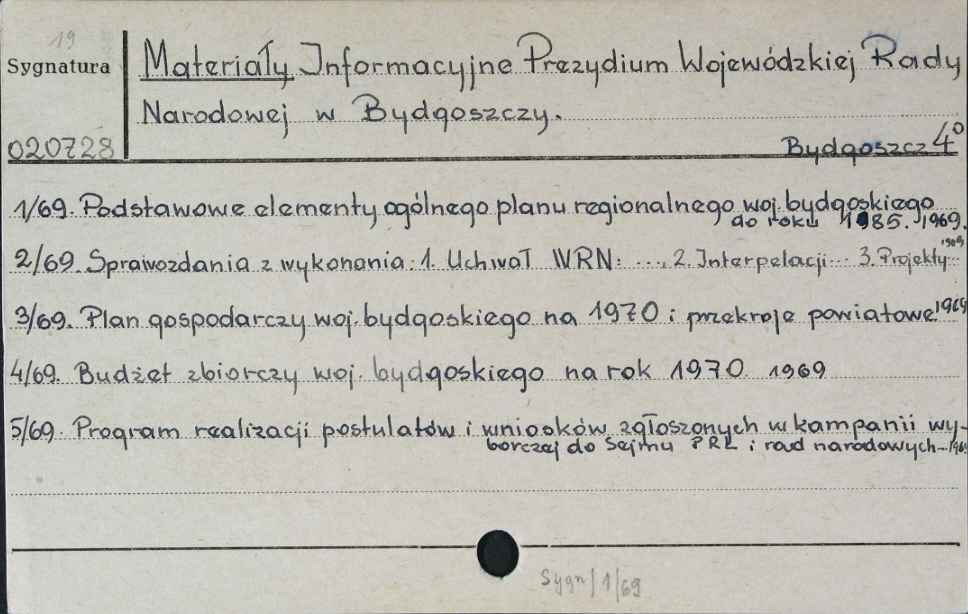 19
Sygnatura
Materiały Informacyjne Prezydium Wojewódzkiej Rady
Narodowej w Bydgoszczy.
020728
Bydgoszcz 4°
1/69. Podstawowe elementy ogólnego planu regionalnego woj. bydgoskiego
do roku 1985. 1969.
2/69. Sprawozdania z wykonania: 1. Uchwał WRN: ..., 2. Interpelacji... 3. Projekty... 1969
3/69. Plan gospodarczy woj. bydgoskiego na 1970 i przekroje powiatowe. 1969
4/69. Budżet zbiorczy woj. bydgoskiego na rok 1970. 1969
5/69. Program realizacji postulatów i wniosków zgłoszonych w kampanii wy-
borczej do Sejmu PRL i rad narodowych... 1969
Sygn/1/69